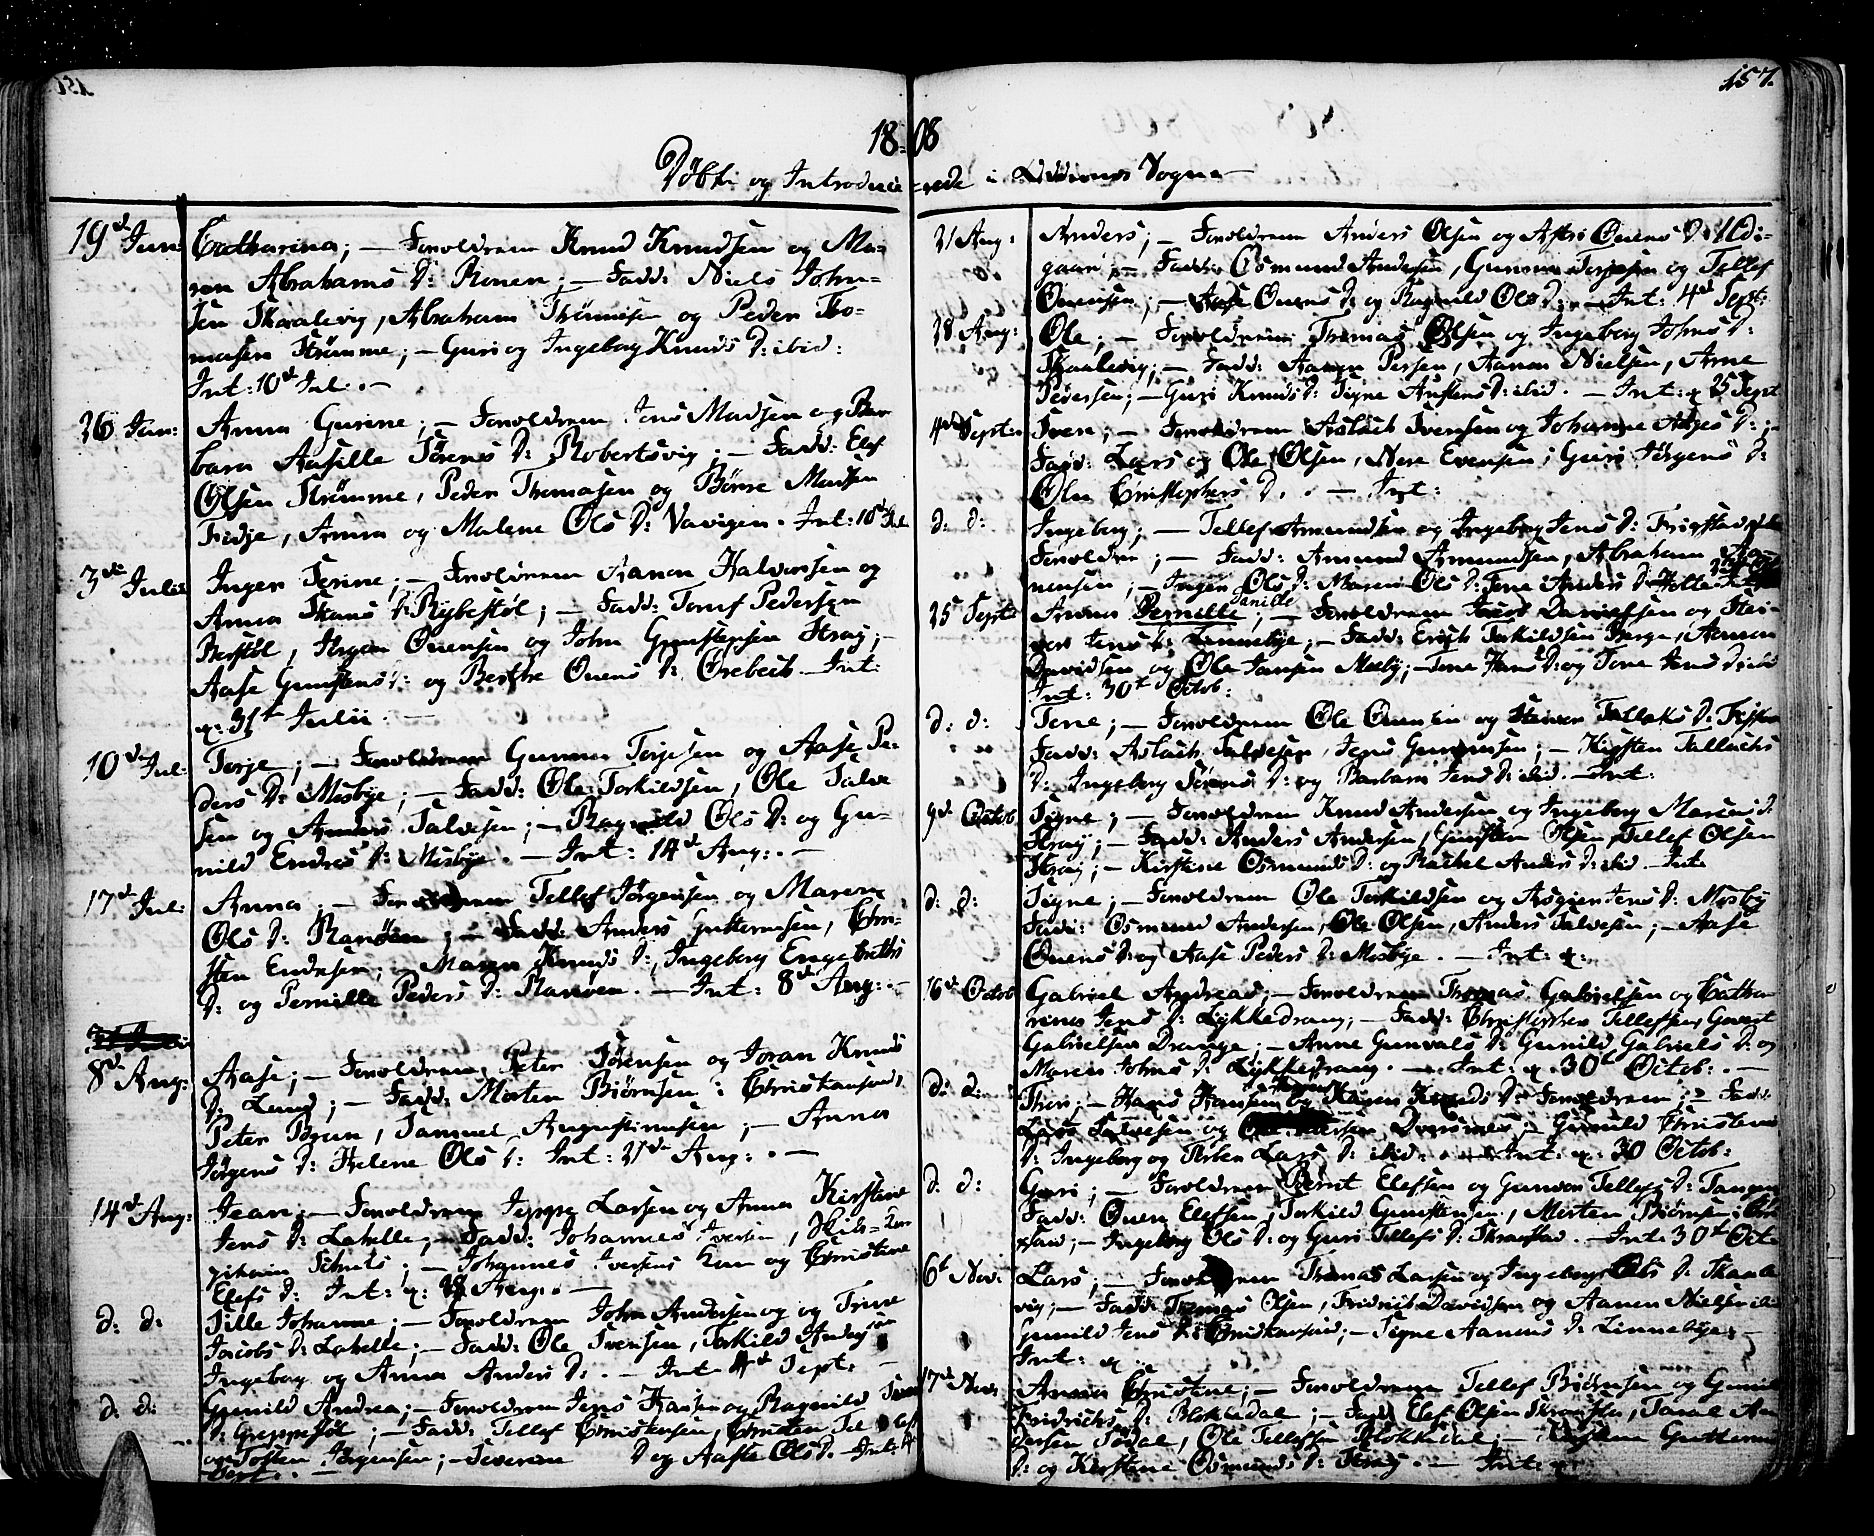 156
157.
18-08
Døbte og Introducerede i Oddernes Sogne
19d Jun: Catharina; — Forældrene Knud Knudsen og Ma-
ren Abrahams D: Ronen; — Fadd: Niels John-
sen Skaalevig, Abraham Thommesen og Peder Tho-
masen Strømme; — Guri og Ingeborg Knuds D: ibid:
Int: 10d Jul. —
26 Jun: Anna Gurine; — Forældrene Jens Madsen og Bar
bara Aasille Sørens D: Robertsvig; — Fadd: Elef
Olsen Strømme, Peder Thomasen og Børre Madsen
Fidje, Anna og Malene Ols D: Vavigen. Int: 10d Jul
3die Julii Inger Serine; — Forældrene Aanon Halvorsen og
Anna Hans D: Rybestøl; — Fadd: Toruf Pedersen
Berstøl, Jørgen Onensen og John Gunstensen Straj; —
Aase Gunstens D: og Berthe Onens D: Ørebech. Int:
q: 31t Julii. —
10d Jul: Torje; — Forældrene Gunner Torjesen og Aase Pe-
ders D: Mosbye; — Fadd: Ole Torkildsen, Ole Salve
sen og Anders Salvesen; — Ragnild Ols D: og Gu-
nild Endres D: Mosbye. — Int: 14d Aug: —
17d Jul: Anna; — Forældrene Tellef Jørgensen og Maren
Ols D: Ranøen; — Fadd: Anders Guttormsen, Chri-
sten Endresen; — Maren Knuds D: Ingeborg Engebretts
D: og Pernille Peders D: Ranøen. — Int: 8d Aug: —
8d Aug: Aase; — Forældrene Peter Sørensen og Joran Knuds
D: Lund; — Fadd: Morten Biørnsen i Christiansand,
Peter Bruun, Samuel Augustinusen; — Anna
Jørgens D: Helene Ols D: Int: 21de Aug: . —
14d Aug: Jean; — Forældrene Jeppe Larsen og Anna Kirstine
Jens D: Lahelle; — Fadd: Johannes Iversen, Skibs-Kap
pitain Schults; — Johannes Iversens Kone og Christine
Elefs D: Int: q: 28 Aug. —
d: d: Sille Johanne; — Forældrene John Andersen og Trine
Jacobs D: Lahelle; — Fadd: Ole Svensen, Torkild Andersen
Ingeborg og Anna Anders D: . — Int 4d Sept: —
d: d: Gunild Andrea; — Forældrene Jens Hansen og Ragnild
D: Greppestøl; — Fadd: Tellef Christensen, Christen
og Tosten Jørgensen; — Severine D og Aaste Ols D. Int: 4
Sept. —
21 Aug: Anders; — Forældrene Anders Olsen og Astri Onens D:
gaard; — Fadd: Osmund Andersen, Gunner Torjesen og Tellef
Onensen; — Aase Onens D: og Ragnild Ols D: — Int: 4d Sept:
28 Aug: Ole; — Forældrene Thomas Olsen og Ingeborg Johns D:
Skaalevig; — Fadd: Aanon Persen, Aanon Nielsen, Arne
Pedersen; — Guri Knuds D: Signe Austens D: ibid. — Int: q 25 Sept
4de Sept: Sven; — Forældrene Aslach Svensen og Johanne Aages D: ;
Fadd: Lars og Ole Olsen, Nere Evensen; Guri Jørgens D:
Olu Christophers D. . — Int:
d: d: Ingeborg; — Tellef Amundsen og Ingeborg Jens D: Frigstad
Forældre; — Fadd: Amund Armundsen, Abraham Aa-
nensen; — Inger Ols D: Maren Ols D: Jene Anders D:
25 Sept: Anna Pernille Danille; — Forældrene Jacob Davidsen og
Jens D: Linnebye; — Fadd: Erich Torkildsen Berge, Aanon
Davidsen og Ole Jansen Meeby; — Tone Hans D: og Tone Jens D: ibid
Int: 30t Octob:
d: d: Tone; — Forældrene Ole Onensen og Steinor Tallaks D:
Fadd: Aslach Salvesen, Jens Gunersen; — Kirsten Tallachs
D: Ingeborg Sørens D: og Barbara Jens D: ibid. — Int:
9d Octob: Signe; — Forældrene Knud Andersen og Ingeborg D:
Straj; — Fadd: Anders Andersen, Gunsten Olsen, Tellef Olsen
Straj; — Kirstine Osmunds D: og Rachel Anders D: ibid Int:
d: d: Signe; — Forældrene Ole Torkildsen og Asgier Jens D: Mosby
Fadd: Osmund Andersen, Ole Olsen, Anders Salvesen; — Aase
Onens D: og Aase Peders D: Mosbye. — Int: q:
16d Octob Gabriel Andreas; — Forældrene Thomas Gabrielsen og Catha
rina Jens D: Lykkedrang; — Fadd: Christopher Tellefsen, Govert
Gabrielsen Drange; — Anne Gunvals D: Gunild Gabriels D: og
Maren Johns D: Lykkedrang. — Int: q. 30t Octob: . —
d: d: Thore; — Hans Hansen og Karen Knuds D: Forældrene; — Fadd:
Lars Salvesen og Dversnes; — Gunild Christens
D: Ingeborg og Torber Lars D: ibid: — Int: q. 30 Octob:
d: d: Guri; — Forældrene Bernt Elefsen og Gunvor Tellefs D: Tangen
Fadd: Onen Elefsen, Torkild Gunstensen, Morten Biørnsen Chri
stsand; — Ingeborg Ols D: og Guri Tellefs D: Skraastad. — Int: 30t Octo
6t Nov: Lars; — Forældrene Thomas Larsen og Ingeborg Ols D: Skaale
vig; — Fadd: Thomas Olsen, Fridrich Davidsen og Aanen Nielsen ibid
Gunild Jens D: Christiansand; — Signe Aanens D: Linnebye; —
Int: q
17d Nov: Anna Christine; — Forældrene Tellef Biørnsen og Gunild
Fridrichs D: Blokkedal; — Fadd: Elef Olsen Skraastad, Taral An
dersen Sødal, Ole Tellefsen Blokkedal; — Guttorms
D: og Kirstine Osmunds D: Straj. — Int: q: